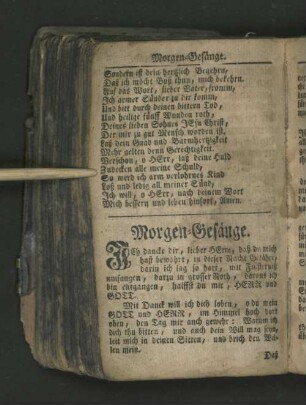 Morgen-Gesänge.
Sondern ist dein hertzlich Begehrn,
Daß ich möcht Buß thun, mich bekehrn.
Auf das Wort, lieber Vater, fromm,
Ich armer Sünder zu dir komm,
Und bitt durch deinen bittern Tod,
Und heilige fünff Wunden roth,
Deines lieben Sohnes JEsu Christ,
Der mir zu gut Mensch worden ist.
Laß dein Gnad und Barmhertzigkeit
Mehr gelten denn Gerechtigkeit.
Verschon, o HErr, laß deine Huld
Zudecken alle meine Schuld,
So werd ich arm verlohrnes Kind
Loß und ledig all meiner Sünd,
Ich will, o HErr, nach deinem Wort
Mich bessern und leben hinfort, Amen.
Morgen-Gesänge.
ICh dancke dir, lieber HErre, daß du mich
hast bewahrt, in dieser Nacht
darinn ich lag so hart, mit Finsterniß
umfangen, darzu in grosser Noth, daraus ich
bin entgangen, halffst du mir, HERR und
GOTT.
Mit Danck will ich dich loben, o du mein
GOTT und HERR, im Himmel hoch dort
oben, den Tag mir auch gewehr: Warum ich
dich thu bitten, und auch dein Will mag seyn,
leit mich in deinen Sitten, und brich den Wil-
len mein.
Daß